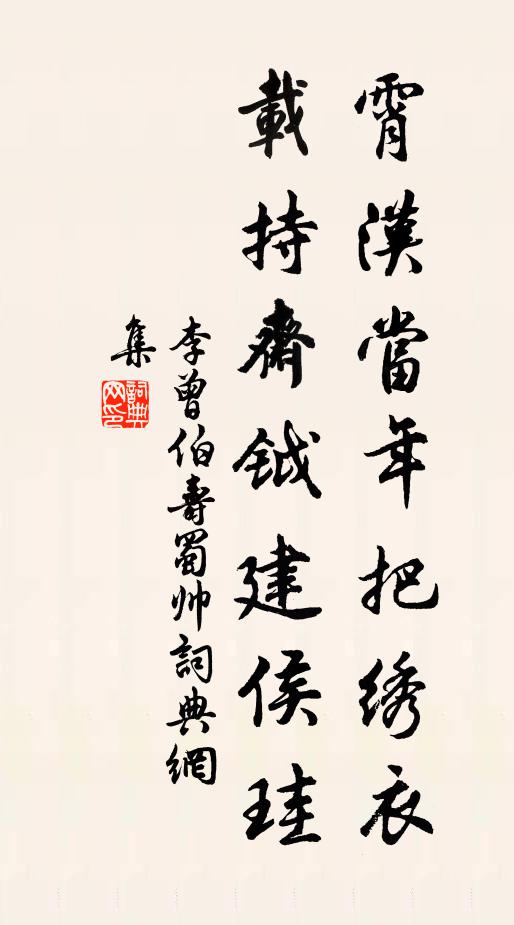 霄漢當年把绣衣
載持齋鉞建侯珪
李曾伯壽蜀帅詞典網
集
詞典網印